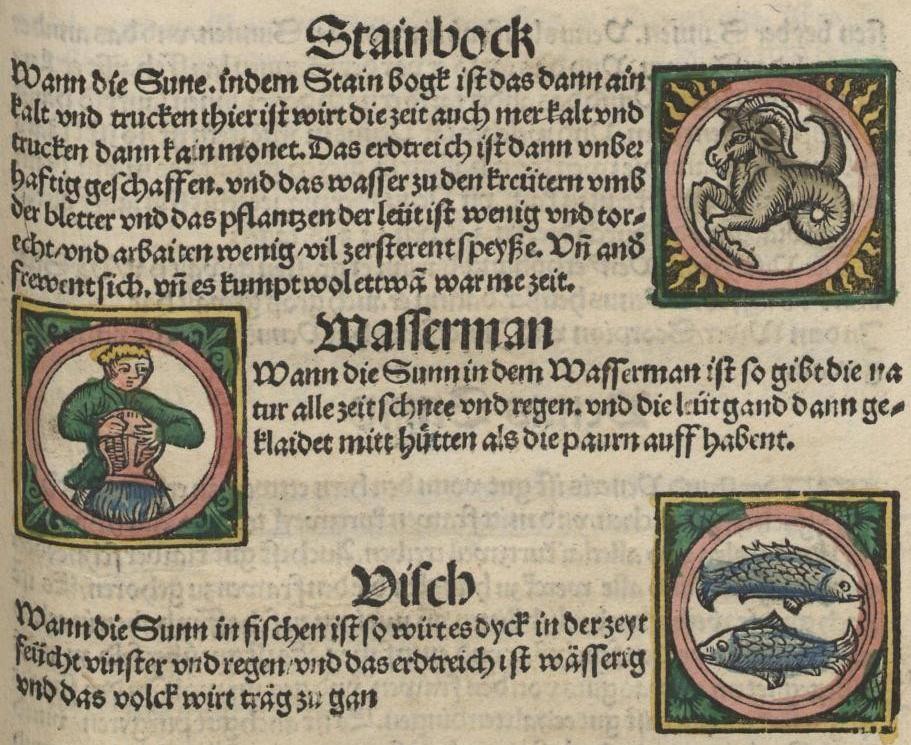 Stainbock
Wann die Sune. indem Stain bogk ist das dann ain
kalt vnd trucken thier ist wirt die zeit auch mer kalt vnd
trucken dann kain monet. Das erdtreich ist dann vnbe⸗
haftig geschaffen. vnd das wasser zu den kreütern vmb
der bletter vnd das pflantzen der leüt ist wenig vnd tor⸗
echt/vnd arbaiten wenig/vil zersterent speyße. Vñ and
frewent sich. vñ es kumpt wol ettwã warme zeit.
Wasserman
Wann die Sunn in dem Wasserman ist so gibt die na
tur alle zeit schnee vnd regen. vnd die leüt gand dann ge⸗
klaidet mitt hütten als die paurn auff habent.
Visch
Wann die Sunn in fischen ist so wirt es dyck in der zeyt
feücht vinster vnd regen/vnd das erdtreich ist wässerig
vnd das volck wirt träg zu gan